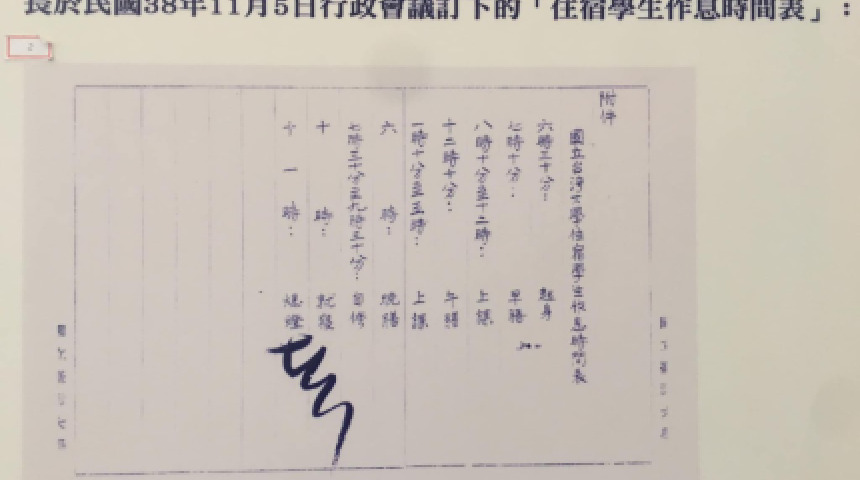 長於民國38年11月5日行政會議訂下的「住宿學生作息時間表」：
2
附件
國立台灣大學住宿學生作息時間表
六時三十分： 起身
七時十分： 早膳
八時十分至十二時： 上課
十二時十分： 午膳
一時十分至五時： 上課
六時： 晚膳
七時三十分至九時三十分： 自修
十時： 就寢
十一時： 熄燈